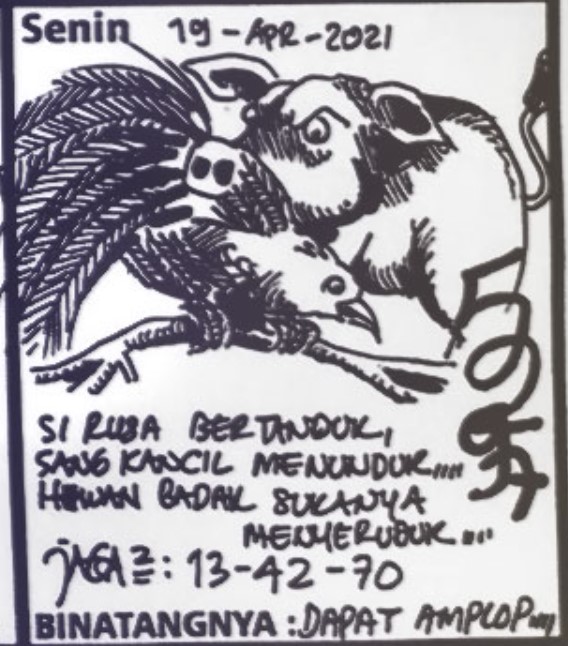 Senin 19-APR-2021
SI RUSA BERTANDUK,
SANG KANCIL MENUNDUK....
HEWAN BADAK SUKANYA
MENYERUDUK...
JAGA2: 13-42-70
BINATANGNYA: DAPAT AMPLOP....